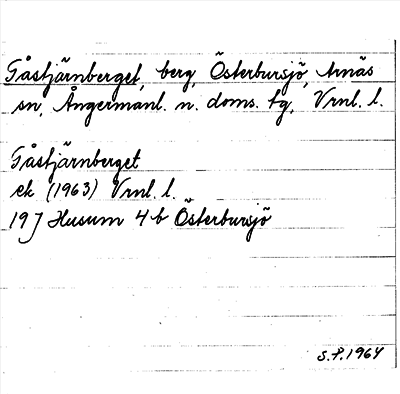 Gåstjärnberget, berg, Österbursjö, Arnäs
sn, Ångermanl. n. doms. tg, Vrnl. l.
Gåstjärnberget
ek (1963) Vrnl. l.
19 J Husum 4 b Österbursjö
S.P. 1964